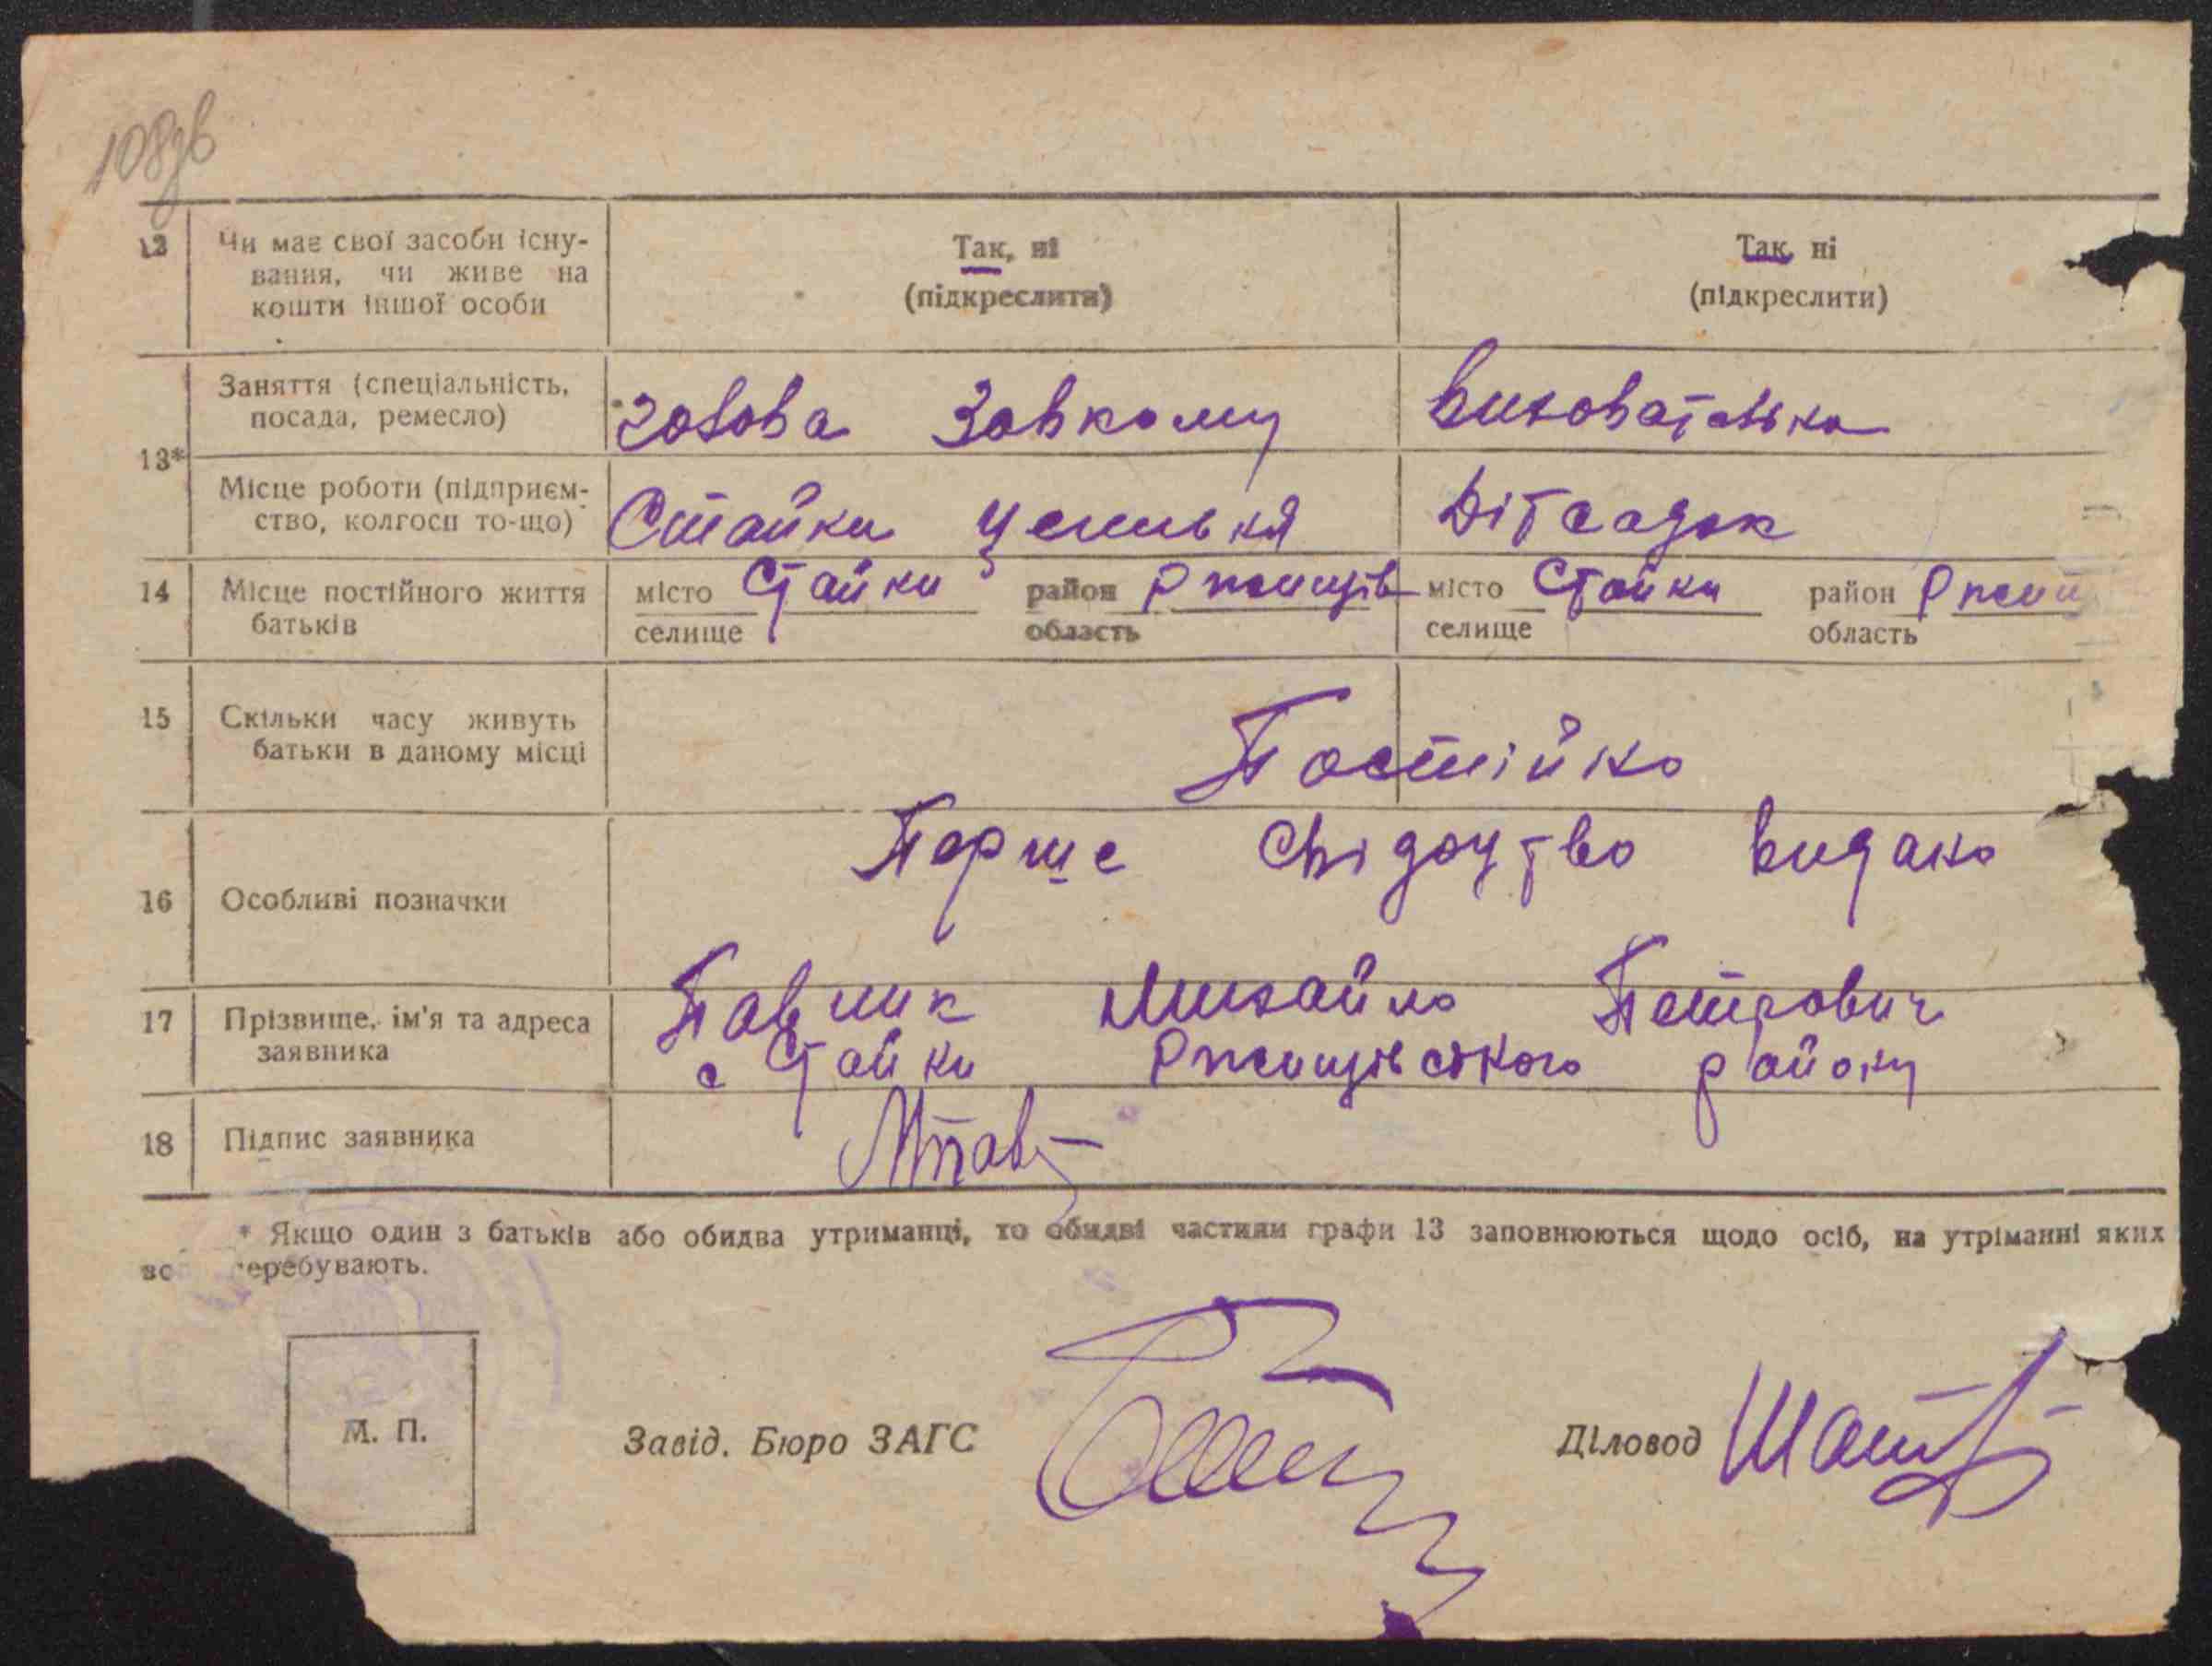 108зв
12 Чи має свої засоби існу-
вання, чи живе на
кошти іншої особи
Так, ні
(підкреслити)
Так, ні
(підкреслити)
13*
Заняття (спеціальність,
посада, ремесло)
голова Завкому
Вихователька
Місце роботи (підприєм-
ство, колгосп то-що)
Стайки
Дітсадок
14 Місце постійного життя
батьків
місто Стайки район Ржищів
селище область
місто Стайки район Ржищ
селище область
15 Скільки часу живуть
батьки в даному місці
Постійно
16 Особливі позначки
Перше свідоцтво видано
17 Прізвище, ім'я та адреса
заявника
Павлик Михайло Петрович
с Стайки Ржищівського району
18 Підпис заявника
МПав
* Якщо один з батьків або обидва утриманці, то обидві частини графи 13 заповнюються щодо осіб, на утріманні яких
перебувають.
М. П.
Завід. Бюро ЗАГС
Діловод